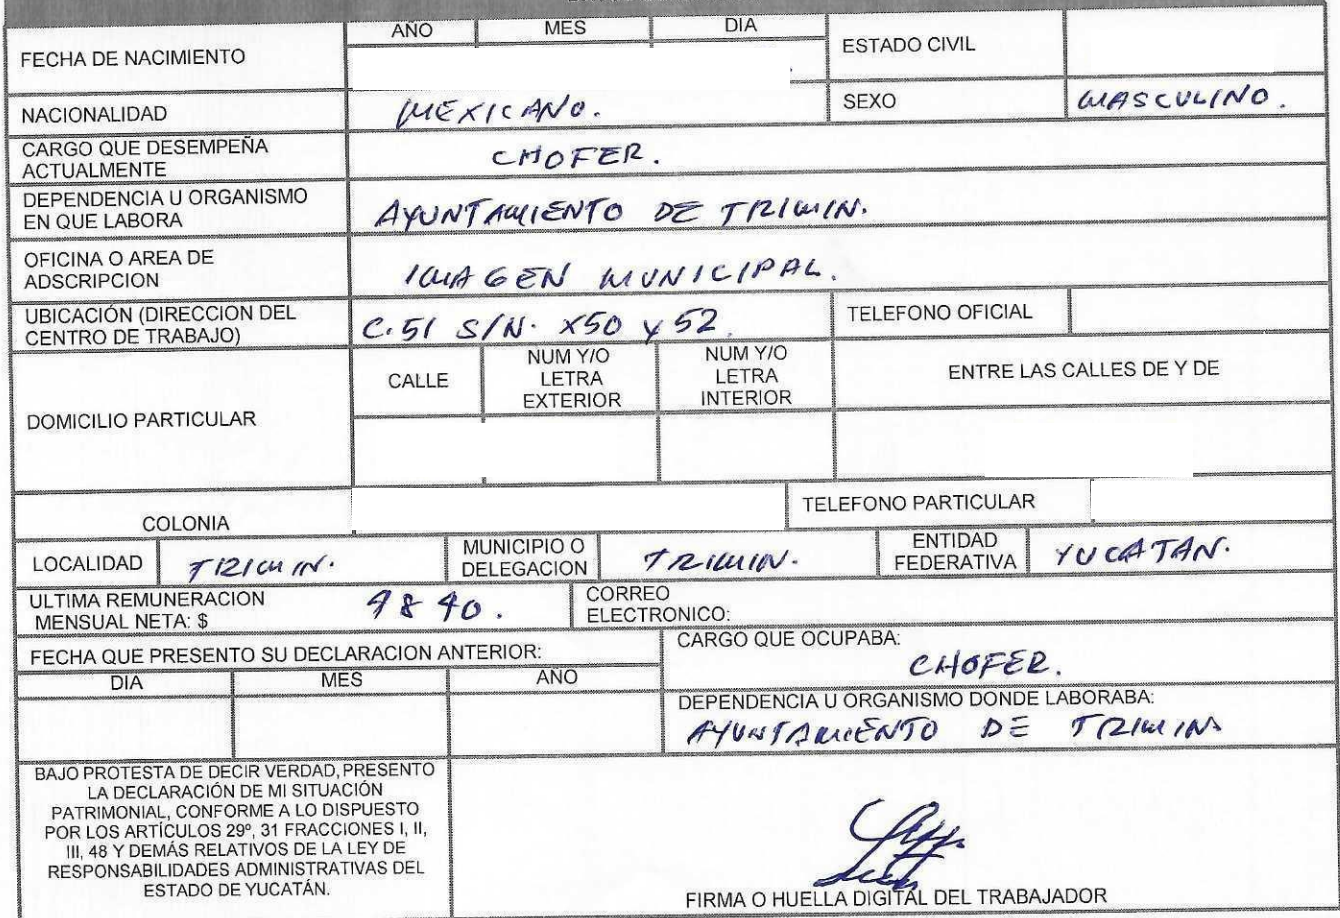 AÑO MES DIA
FECHA DE NACIMIENTO
ESTADO CIVIL
NACIONALIDAD MEXICANO. SEXO MASCULINO.
CARGO QUE DESEMPEÑA
ACTUALMENTE
CHOFER.
DEPENDENCIA U ORGANISMO
EN QUE LABORA
AYUNTAMIENTO DE TIZIMIN.
OFICINA O AREA DE
ADSCRIPCION
IMAGEN MUNICIPAL.
UBICACIÓN (DIRECCION DEL
CENTRO DE TRABAJO)
C.51 S/N. X50 y 52.
TELEFONO OFICIAL
DOMICILIO PARTICULAR
CALLE
NUM Y/O
LETRA
EXTERIOR
NUM Y/O
LETRA
INTERIOR
ENTRE LAS CALLES DE Y DE
COLONIA
TELEFONO PARTICULAR
LOCALIDAD TIZIMIN.
MUNICIPIO O
DELEGACION
TIZIMIN.
ENTIDAD
FEDERATIVA
YUCATAN.
ULTIMA REMUNERACION
MENSUAL NETA: $
CORREO
ELECTRONICO:
FECHA QUE PRESENTO SU DECLARACION ANTERIOR:
DIA MES ANO
CARGO QUE OCUPABA:
CHOFER.
DEPENDENCIA U ORGANISMO DONDE LABORABA:
AYUNTAMIENTO DE TIZIMIN
BAJO PROTESTA DE DECIR VERDAD, PRESENTO
LA DECLARACIÓN DE MI SITUACIÓN
PATRIMONIAL, CONFORME A LO DISPUESTO
POR LOS ARTÍCULOS 29º, 31 FRACCIONES I, II,
III, 48 Y DEMÁS RELATIVOS DE LA LEY DE
RESPONSABILIDADES ADMINISTRATIVAS DEL
ESTADO DE YUCATÁN.
FIRMA O HUELLA DIGITAL DEL TRABAJADOR